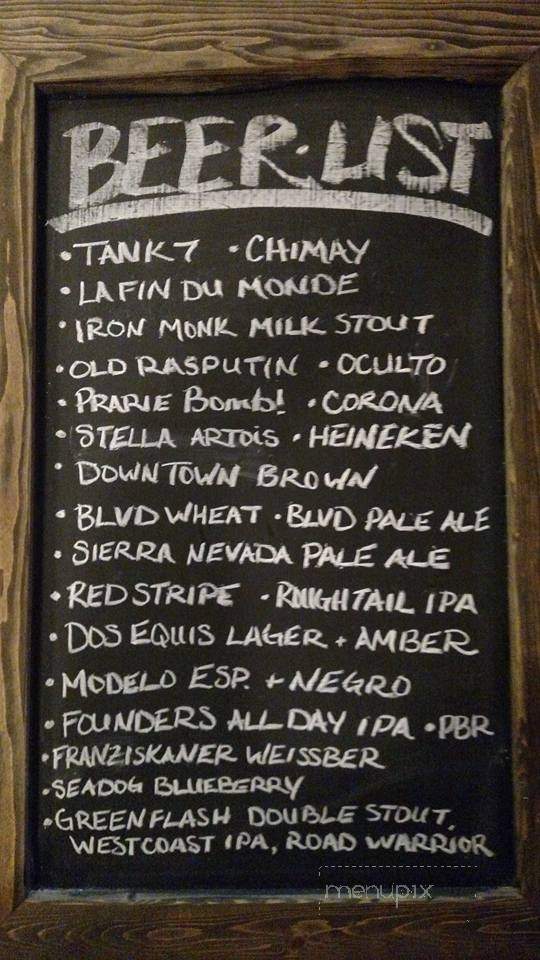 BEER·LIST
• TANK 7 • CHIMAY
• LA FIN DU MONDE
• IRON MONK MILK STOUT
• OLD RASPUTIN • OCULTO
• PRARIE Bomb! • CORONA
• STELLA ARTOIS • HEINEKEN
• DOWNTOWN BROWN
• BLVD WHEAT • BLVD PALE ALE
• SIERRA NEVADA PALE ALE
• RED STRIPE • ROUGHTAIL IPA
• DOS EQUIS LAGER + AMBER
• MODELO ESP. + NEGRO
• FOUNDERS ALL DAY IPA • PBR
• FRANZISKANER WEISSBER
• SEADOG BLUEBERRY
• GREENFLASH DOUBLE STOUT,
WESTCOAST IPA, ROAD WARRIOR
menupix